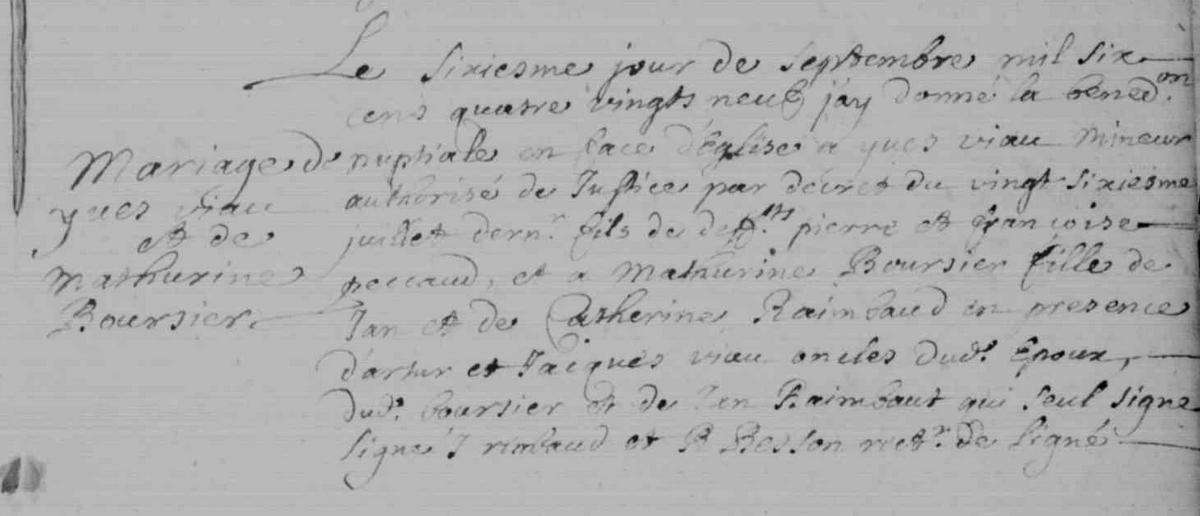 Mariage de
yves viau
et de
Mathurine
Boursier.
Le sixiesme jour de septembre mil six
cens quatre vingts neuf jay donné la bened.on
nuptiale en face d'église a yves viau Mineur
authorisé de Justice par décret du vingt sixiesme
juillet dern.r fils de deff.ts pierre et françoise
peccaud, et a Mathurine Boursier fille de
Jan et de Catherine Raimbaud en presence
d'artur et Jacques viau oncles dud.t Epoux,
dud.t boursier et de Jan Raimbaut qui seul signe
signé J rimbaud et R Besson rect.r de signé